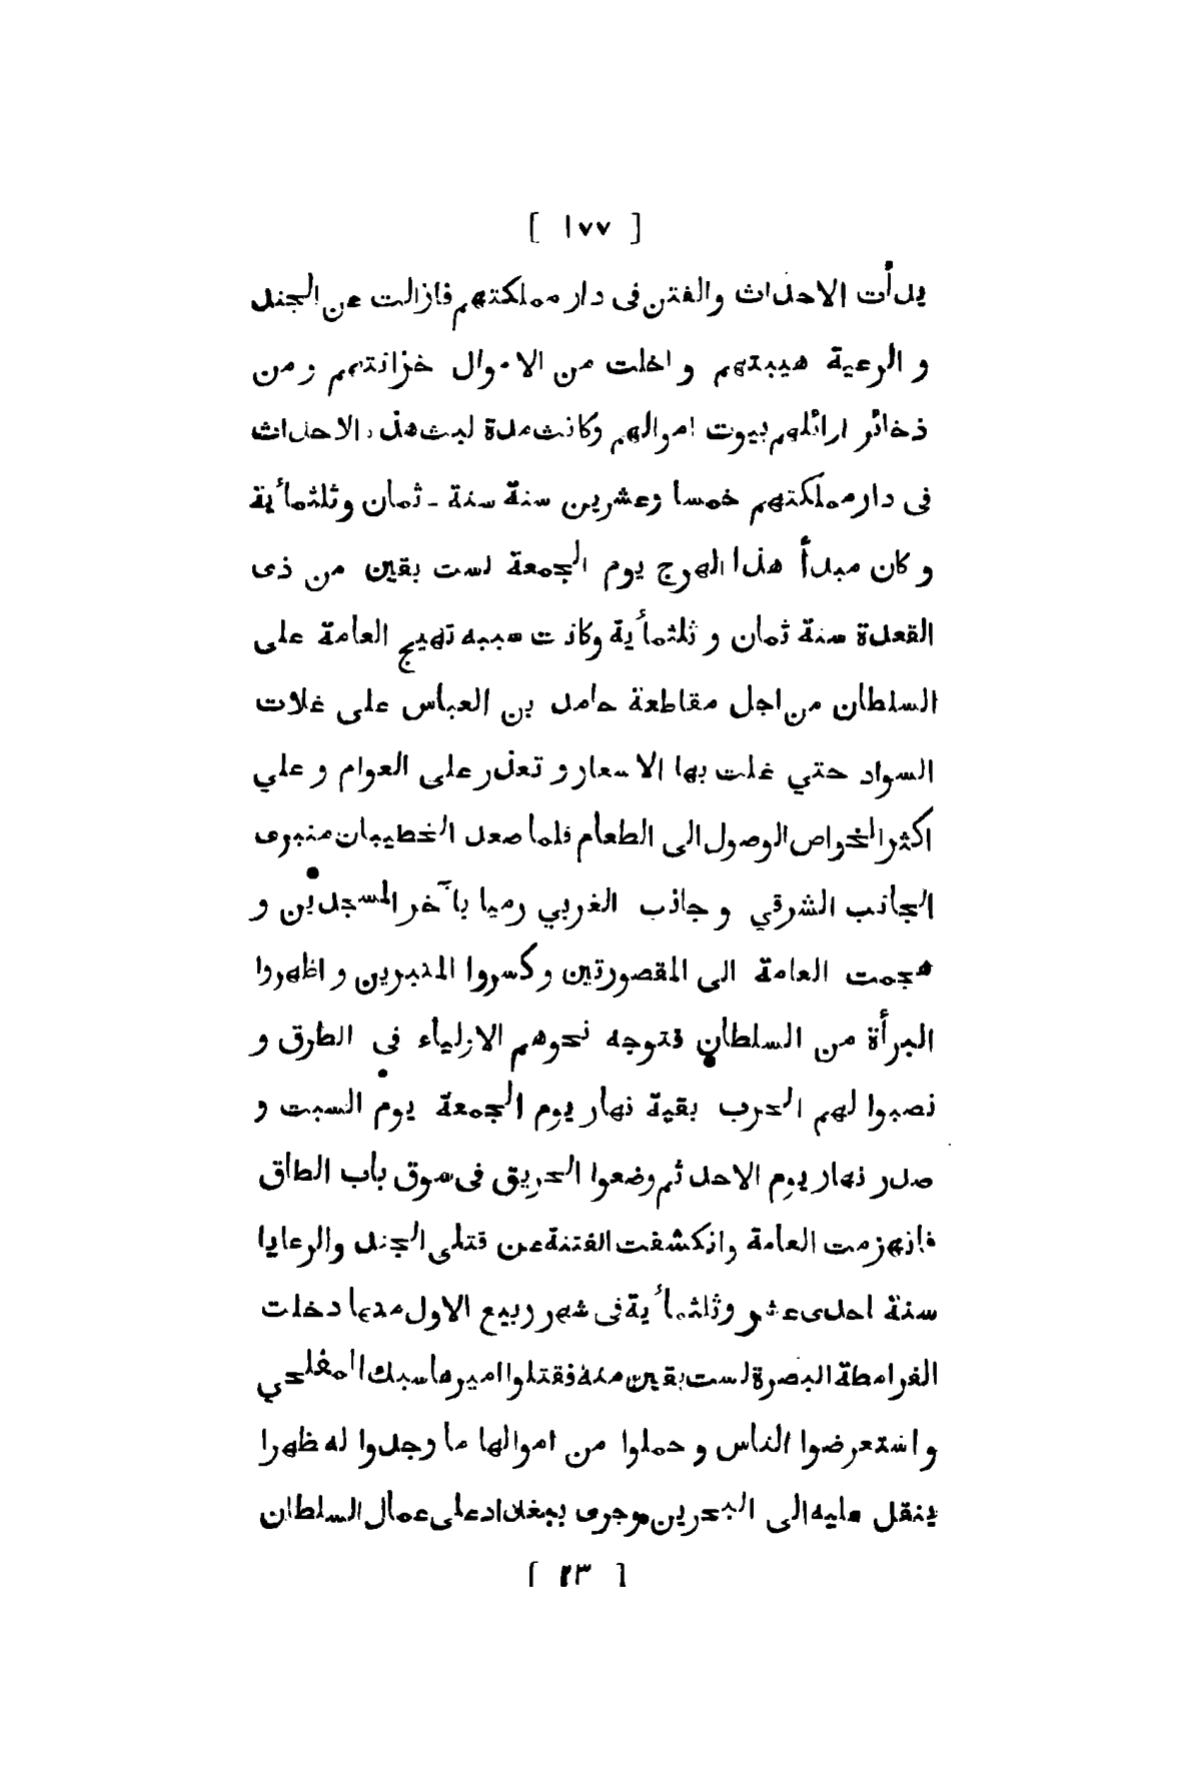 [ ١٧٧ ]
يدأت الاحداث والفتن فى دار مملكتهم فازالت عن الجند
و الرعية هيبتهم و اخلت من الاموال خزانتهم و من
ذخائر ارائلهم بيوت اموالهم وكانت مدة لبث هذه الاحداث
فى دار مملكتهم خمسا وعشرين سنة سنة ـ ثمان وثلثمأية
و كان مبدأ هذا الهرج يوم الجمعة لست بقين من ذى
القعدة سنة ثمان و ثلثمأية وكانت سببه تهيج العامة على
السلطان من اجل مقاطعة حامد بن العباس على غلات
السواد حتي غلت بها الاسعار و تعذر على العوام و علي
اكثر الخواص الوصول الى الطعام فلما صعد الخطيبان منبرى
الجانب الشرقي و جانب الغربي رميا بآخر المسجدين و
هجمت العامة الى المقصورتين و كسروا المنبرين و اظهروا
البرأة من السلطان فتوجه نحوهم الازلياء فى الطرق و
نصبوا لهم الحرب بقية نهار يوم الجمعة يوم السبت و
صدر نهار يوم الاحد ثم وضعوا الحريق فى سوق باب الطاق
فانهزمت العامة وانكشفت الفتنة عن قتلى الجند والرعايا
سنة احدى عشر وثلثمأية فى شهر ربيع الاول منها دخلت
القرامطة البصرة لست بقين منه فقتلوا اميرها سبك المفلحي
و استعرضوا الناس و حملوا من اموالها ما وجدوا له ظهرا
ينقل عليه الى البحرين وجرى ببغداد على عمال السلطان
[ ٢٣ ]